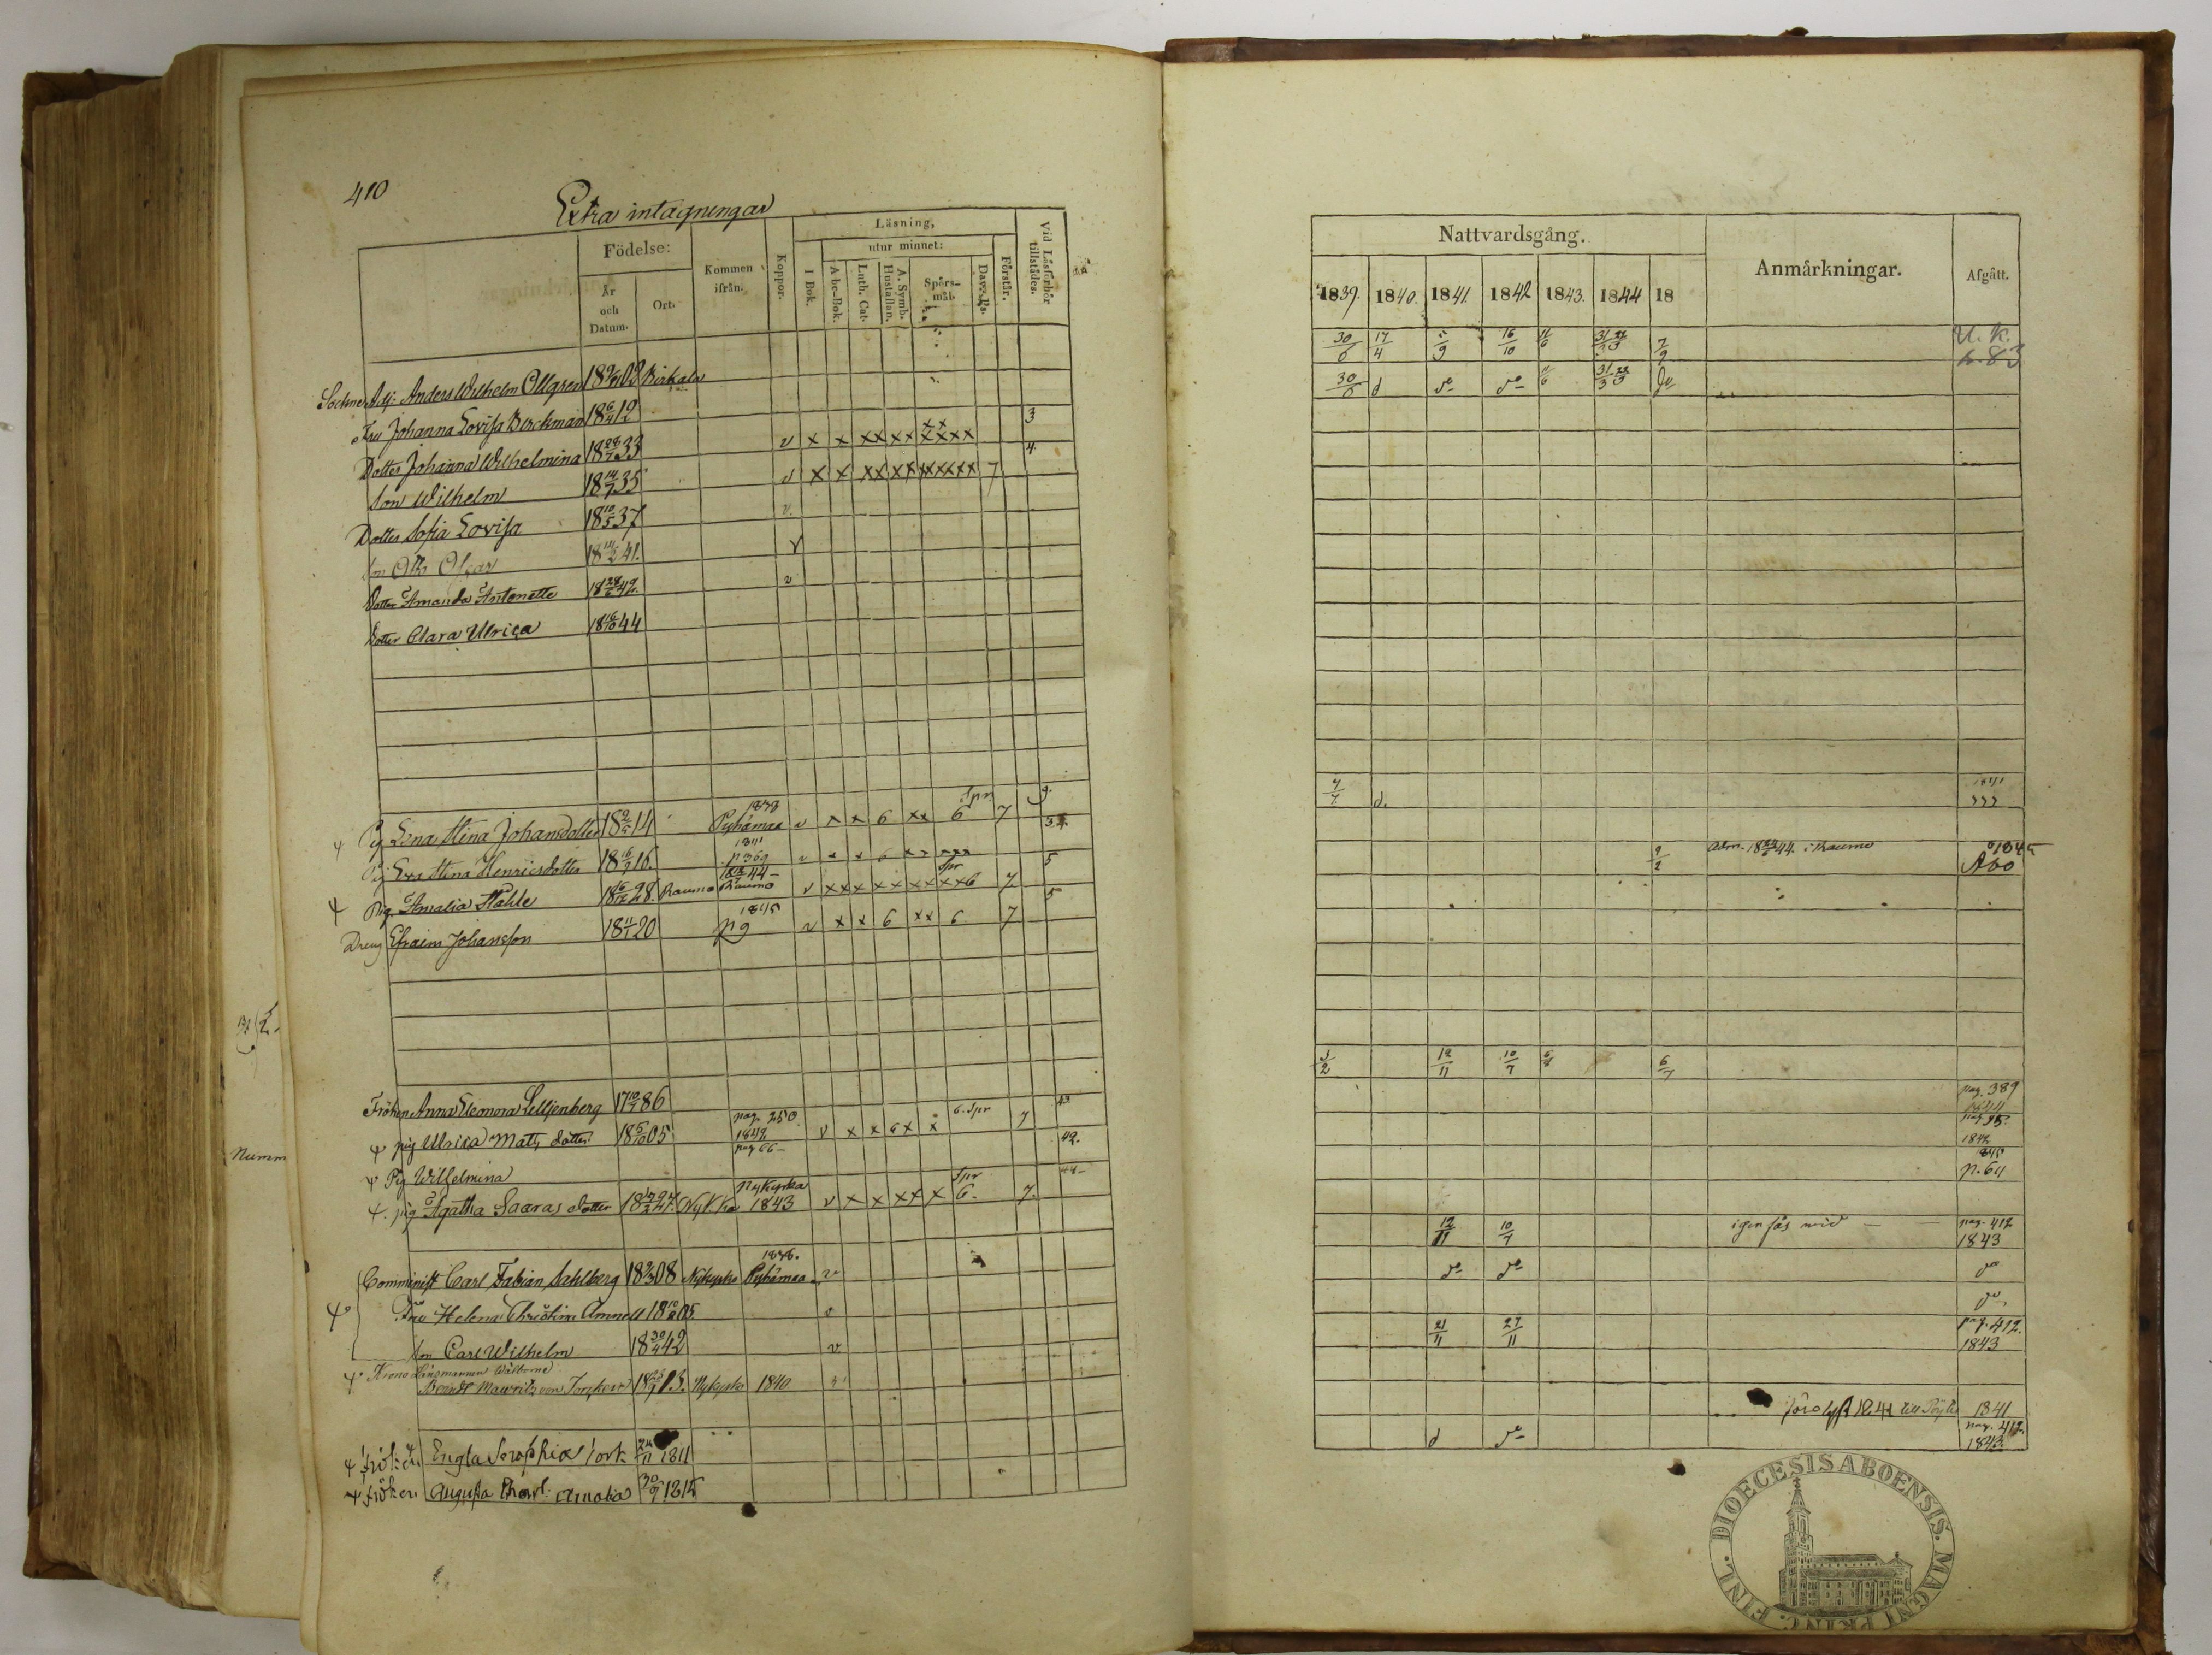 410
Extra intagningar
Födelse:
År och Datum.
Ort.
Kommen ifrån.
Koppor.
Läsning,
I Bok.
utur minnet:
Abc-Bok.
Luth. Cat.
A. Symb. Hustaflan.
Spörs-mål.
Dav. Ps.
Förstår.
Vid Läsförhör tillstädes.
Sockne Adj: Anders Wilhelm Ollgren 18 09 Birkala
Fru Johanna Lovisa Berckman 18 6/4 12
Dotter Johanna Wilhelmina 18 33 v x x xx xx xx xxxx 3
Son Wilhelm 18 14/7 35 v x x xx xx xxxxxx 7 4
Dotter Sofia Lovisa 18 10/5 37 v
Son Otto 18 41. v
Dotter Amanda Antonette 18 28 42. v
Dotter Clara Ulrica 18 16/10 44
Pig Lena Stina Johansdotter 18 14 1838 Pyhämaa v x x 6 xx Spr 6 7 9.
Pig Eva Stina Henricsdotter 18 16/9 16. 1841 p 369 v x x 6 xx xxx
Pig Amalia Stahle 18 6/12 28. Raumo 44 Raumo v xxx x x x xxx6 Spr 7. 5
Dreng Efraim Johansson 18 11/1 20 1845 pg v x x 6 xx 6 7 5
Fröken Anna Eleonora Lilljenberg 17 10/7 86
pig Ulrica Mats dotter 18 6/10 05 pag. 250 1842 pag 66 v x x 6 x x 6. Spr 7 43
Pig Wilhelmina 42.
pig Agatha Saaras dotter 18 24. Nykko Nykyrka 1843 v x x xx x Spr 6. 7.
Comminist Carl Fabian Sahlberg 18 08 Nykyrko 1838. Pyhämaa v
Fru Helena Christina Amnell 18 10/8 05 v
Son Carl Wilhelm 18 30/4 42 v
Krono Länsmannen Wälborne
Berndt Mauritz von 18 13. Nykyrko 1840
fröken Engla Serophia 24/11 1811
fröken Augusta Charl: Amalia 30/9 1815
Nattvardsgång.
Anmärkningar.
Afgått.
1839. 1840. 1841. 1842 1843. 1844 18
30/6 17/4 5/9 16/10 11/6 31/3 22/9 7/9 U. K. p. 83
30/6 d do do 11/6 31/3 22/9 do
7/7 d. 1841
9/2 Adm. 18 44. i Raumo 1845 Abo
1/2 12/11 10/7 6/7
pag. 389
1844
pag 35.
1842
1845
p. 64
12/11 10/7 igen fås wid — — pag. 412 1843
do do do
do
21/11 27/11 pag. 412. 1843
1841 till 1841
d do pag. 412. 1843
DIOECESIS ABOENSIS. MAGNI PRINC. FINL.